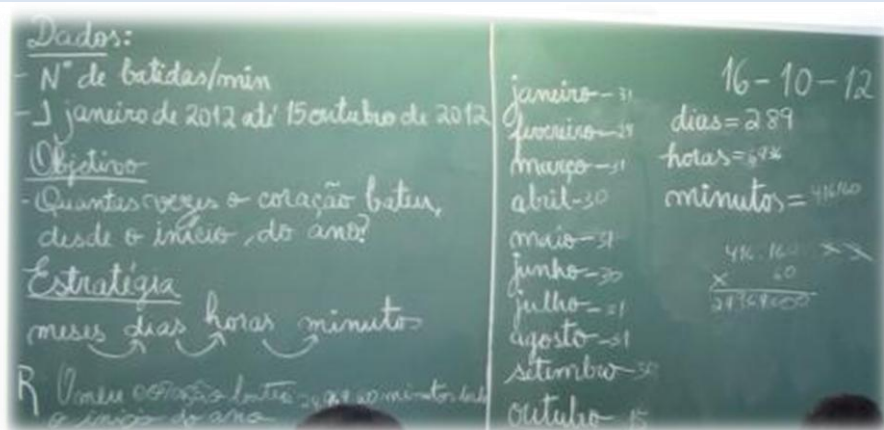 Dados:
- Nº de batidas/min
- 1 janeiro de 2012 até 15 outubro de 2012
Objetivo
- Quantas vezes o coração bateu,
desde o início, do ano?
Estratégia
meses dias horas minutos
R O meu coração bateu minutos
o início do ano
16-10-12
janeiro-31
fevereiro-29
março-31
abril-30
maio-31
junho-30
julho-31
agosto-31
setembro-30
outubro-15
dias=289
horas=6936
minutos=416160
416.160
x 60